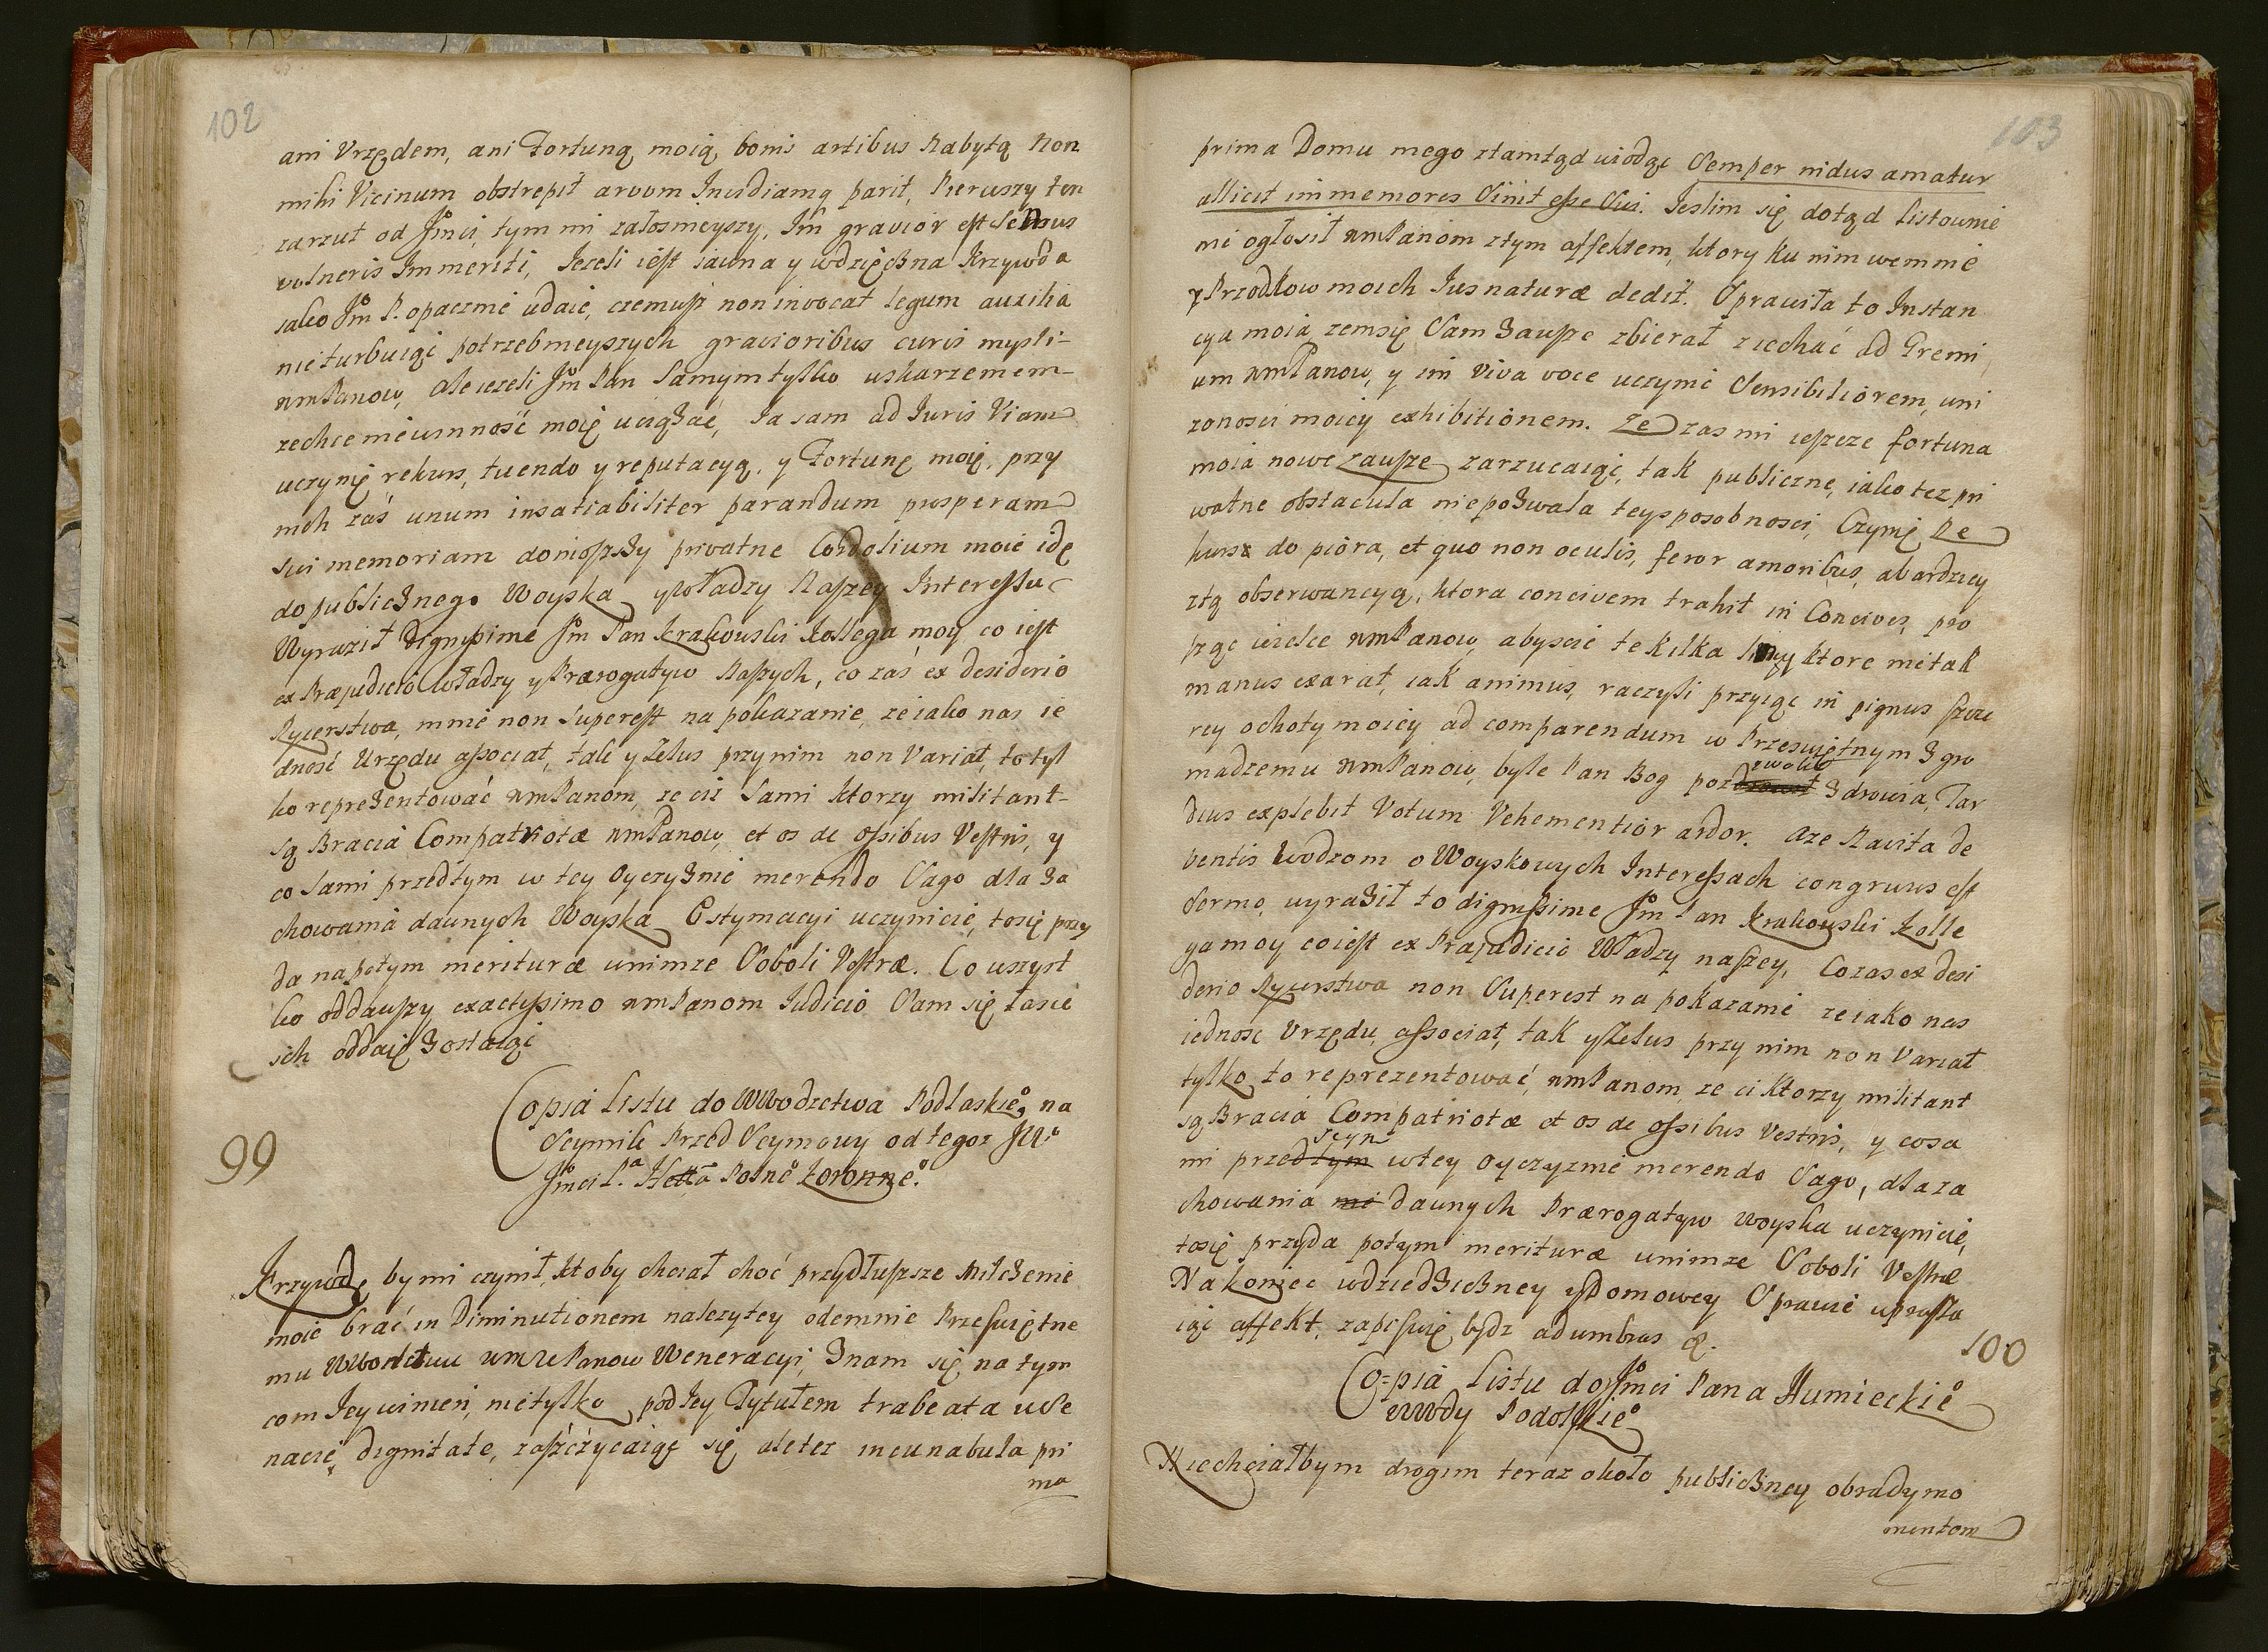 102
ani Vrzędem, ani Fortuną moią, bonis artibus Nabytą Non
mihi Vicinum obstrepit arvom Invidiamq parit, Pierwszy ten
zarzut od Jmci, tym mi załosnieyszy, Im gravior est Sensus
vulneris Immeriti, Jezeli iest iawna y wdzięczna Krzywda
iako Jm P. opacznie udaie, czemusz non invocat legum auxilia
nieturbuiąc potrzebnieyszych gravioribus curis mysli-
WmPanow, Ale iezeli Jm Pan Samym tylko uskarzeniem-
zechce niewinność moię uciąząć, Ja sam ad Iuris Viam
uczynię rekurs, tuendo y reputacyą, y Fortunę moię, przy
nich zaś unum insatiabiliter parandum prosperam
sui memoriam doniosszy privatne Cordolium moie idę
do publicznego Woyska y Władzy Naszey Interessu
Wyraził Dignissime Jm Pan Krakowski Kollega moy co iest
ex Præjudicio Władzy y Prærogatyw Naszych, co zaś ex desiderio
Rycerstwa, mnie non Superest na pokazanie, ze iako nas ie
dność Urzędu associat, tak y Zelus przy nim non Variat, to tyl
ko reprezentować WmPanom, ze ciż Sami ktorzy militant-
są Bracia Compatriotæ WmPanow, et os de ossibus Vestris, y
co Sami przedtym w tey Oyczyznie merendo Sago dla za
chowania dawnych Woyska Estymacyi uczynicie, tosię przy
da napotym merituræ unimze Soboli Vestræ. Co wszyst
ko oddawszy exactissimo WmPanom Iudicio Sam się łasce
ich oddaię zostaiąc
99
Copia Listu do WWodztwa Podlaskiego na
Seymik Przed Seymowy od tegoz JW
Jmci Pa Hettа Polnego Koronnego
Krzywdę by mi czynił, ktoby chciał choć przydłuższe Milczenie
moie brać in Diminutionem nalezytey odemnie Przeswiętne
mu WWodztwu WmPanow Weneracyi, Znam się na tym
com Jey winien, nietylko pod Jey Tytułem trabeata we Se
nacie dignitate, zaszczycaiąc się ale tez incunabula pri
ma
103
prima Domu mego ztamtąd wiodąc Semper nidus amatur
Allicit immemores Sinit esse Sui. Jeslim się dotąd listownie
nie ogłosił WmPanom ztym affektem, ktory ku nim wemnie
z Przodkow moich Ius naturæ dedit. Sprawiła to Instan
cya moia zemsię Sam Zawsze zbierał ziechać ad Gremi
um WmPanow, y im viva voce uczynić Sensibiliorem, uni
zonosci moiey exhibitionem. Ze zas mi ieszcze fortuna
moia nowe zawsze zarzucaiąc, tak publiczne, iako tez pri
watne obstacula niepozwala tey sposobnosci, Czynię Re
kurs do pióra, et quo non oculis, feror amoribus, abardziey
ztą obserwancyą, ktora concivem trahit in Concives, pro
szę wielce WmPanow, abyscie te kilka linij ktore nie tak
manus exarat, iak animus, raczyli przyiąc in pignus szcze
rey ochoty moiey ad comparendum w Przeswiętnym Zgro
madzeniu WmPanow, byle Pan Bog pozwolił Zdrowia, Tar
dius explebit Votum Vehementior ardor. Aze Navita de
ventis Wodzom o Woyskowych Interessach congruus est
Sermo, wyraził to dignissime Jm Pan Krakowski Kolle
ga moy co iest ex Præjudicio Władzy naszey, Co zas ex desi
derio Rycerstwa non Superest na pokazanie ze iako nas
iednosc Urzędu, associat, tak y Zelus przy nim non Variat
tylko to reprezentować, WmPanom, ze ci ktorzy militant
są Bracia Compatriotæ et os de ossibus Vestris, y co sa
mi przedtym w tey Oyczyznie merendo Sago, dla za
chowania dawnych Prærogatyw woyska uczynicie,
tosię przyda potym merituræ unimze Soboli Vestræ
Nakoniec wdziedziczney y Domowey Sprawie uprasza
iąc affekt, zapisuię bydz adumbras &.
100
Copia Listu do Jmci Pana Humieckiego
WWdy Podolskiego
Niechciałbym drogim teraz około publiczney obrady mo
mentom